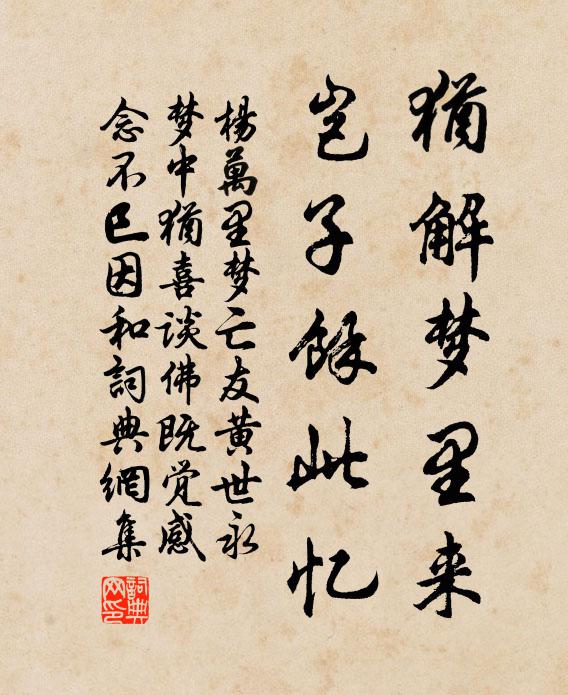 猶解梦里来
岂子餘此忆
楊萬里梦亡友黄世永
梦中猶喜谈佛既觉感
念不已因和詞典網集
詞典网印